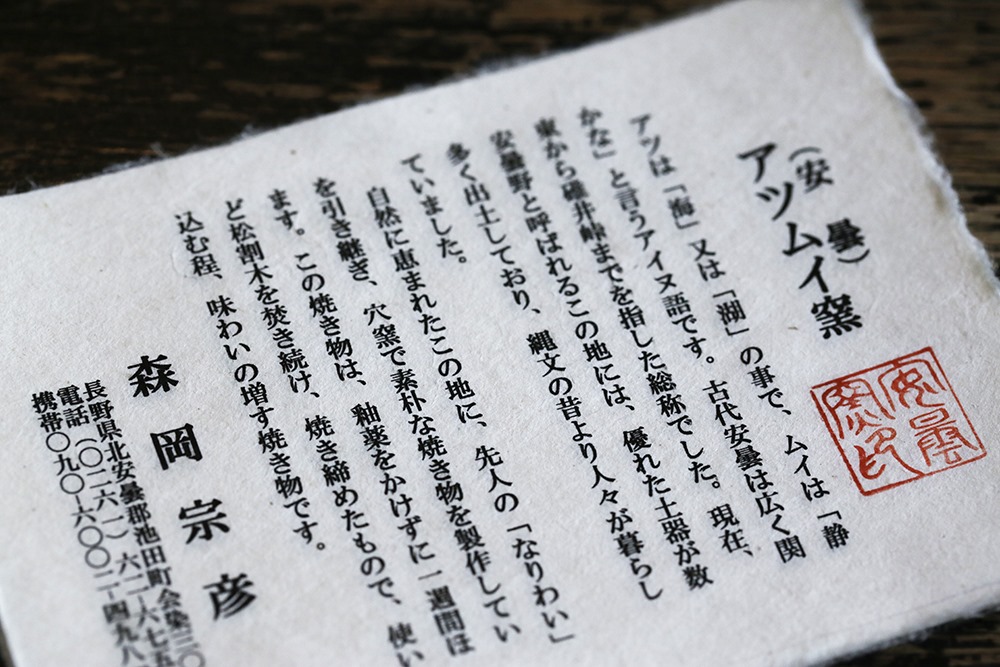 (安曇)
アツムイ窯
アツは「海」又は「湖」の事で、ムイは「静
かな」と言うアイヌ語です。古代安曇は広く関
東から碓井峠までを指した総称でした。現在、
安曇野と呼ばれるこの地には、優れた土器が数
多く出土しており、縄文の昔より人々が暮らし
ていました。
自然に恵まれたこの地に、先人の「なりわい」
を引き継ぎ、穴窯で素朴な焼き物を製作してい
ます。この焼き物は、釉薬をかけずに一週間ほ
ど松割木を焚き続け、焼き締めたもので、使い
込む程、味わいの増す焼き物です。
森岡宗彦
長野県北安曇郡池田町会染三〇
電話(〇二六一)六二-六七五
携帯〇九〇-六〇〇二-四九八